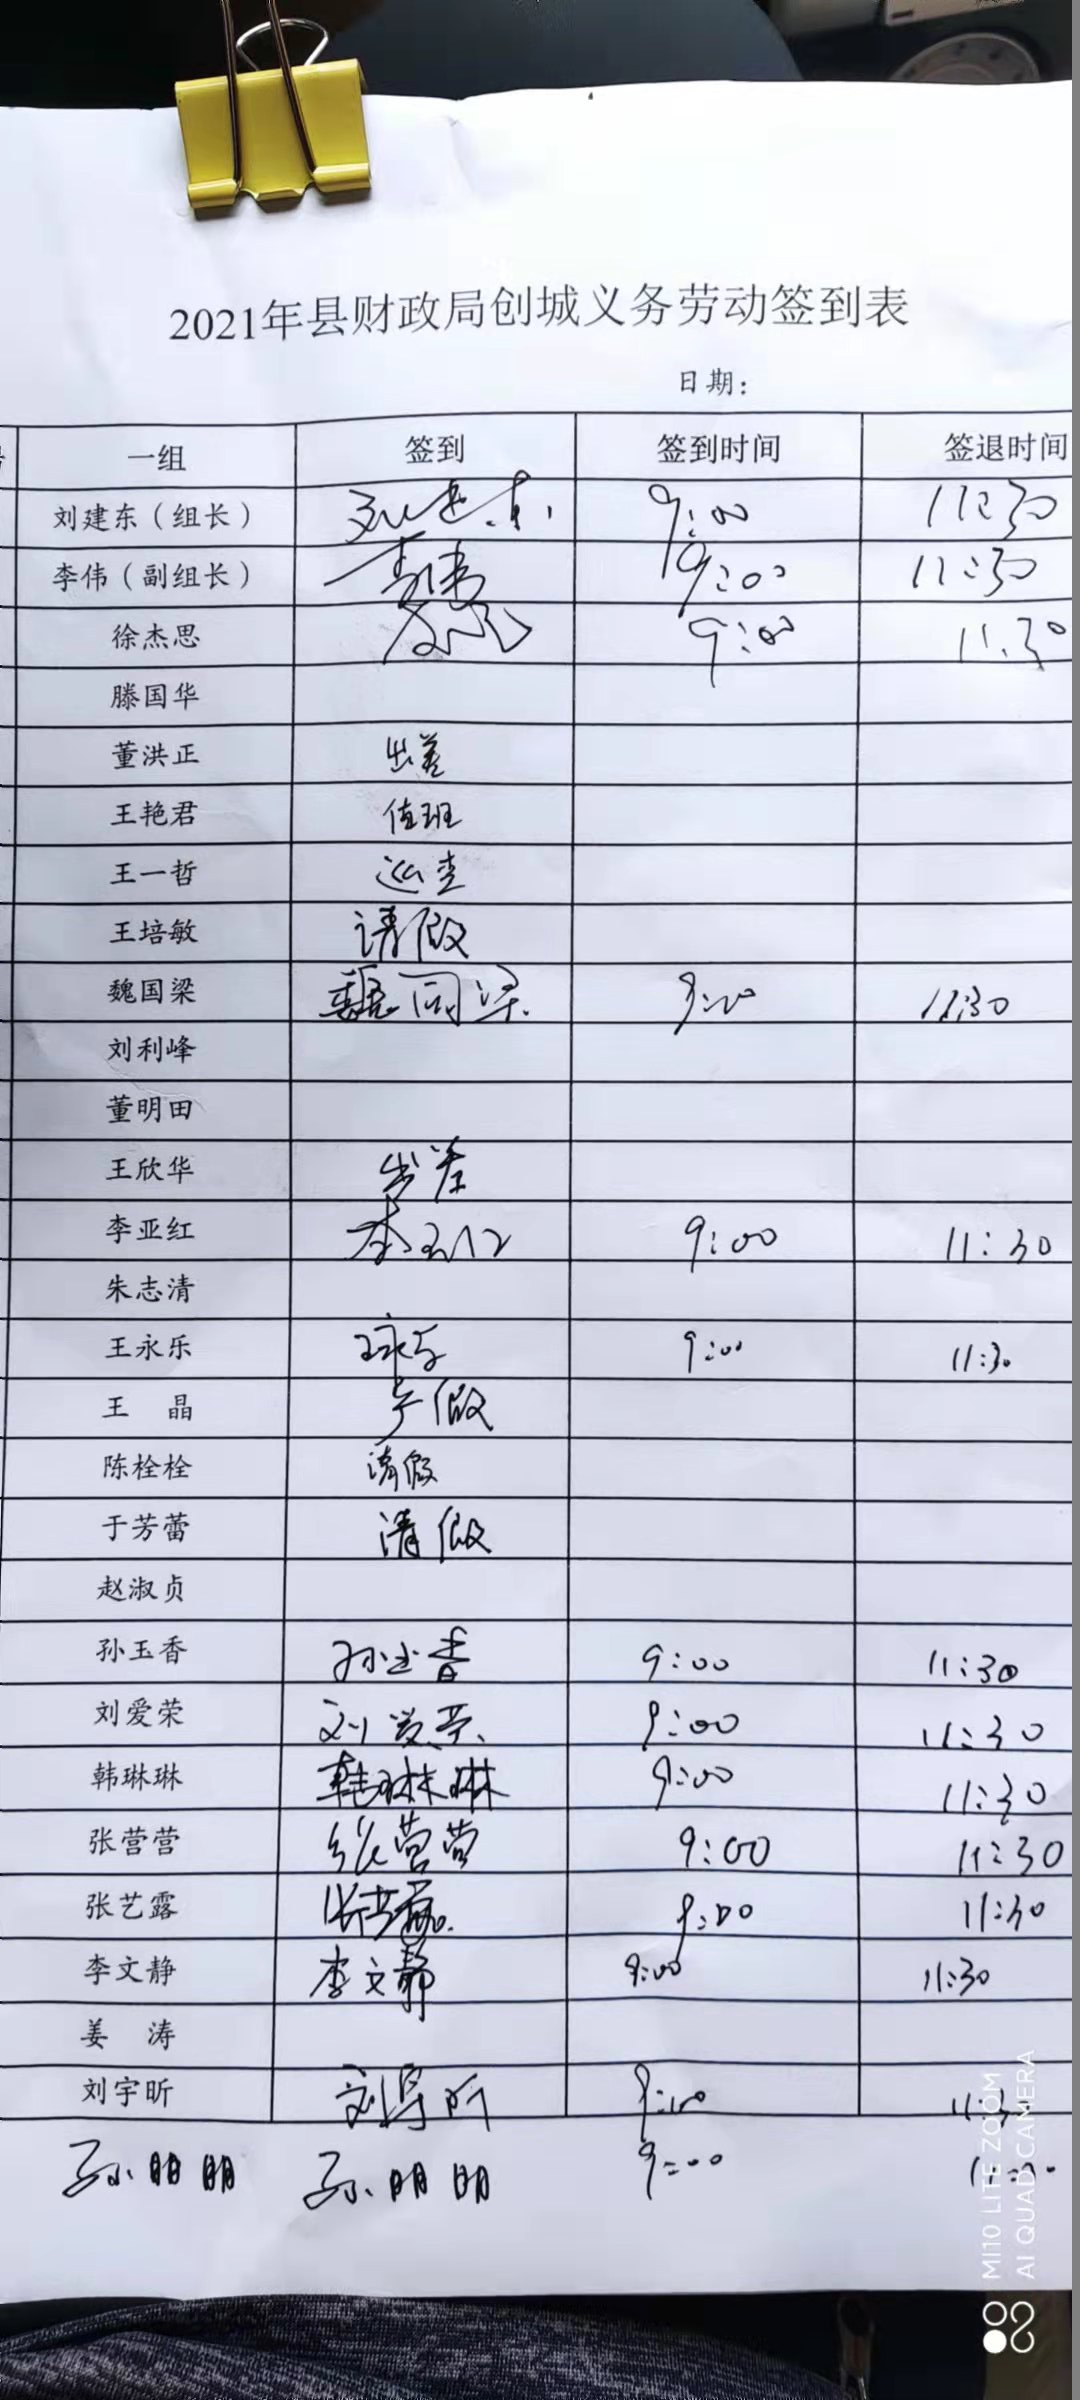 2021年县财政局创城义务劳动签到表
日期：
一组 签到 签到时间 签退时间
刘建东（组长） 刘建东 9:00 11:30
李伟（副组长） 李伟 9:00 11:30
徐杰思 9:00 11:30
滕国华
董洪正 出差
王艳君 值班
王一哲 巡查
王培敏 请假
魏国梁 魏国梁 9:00 11:30
刘利峰
董明田
王欣华 出差
李亚红 李亚红 9:00 11:30
朱志清
王永乐 王永乐 9:00 11:30
王 晶 产假
陈栓栓 请假
于芳蕾 请假
赵淑贞
孙玉香 孙玉香 9:00 11:30
刘爱荣 刘爱荣 9:00 11:30
韩琳琳 韩琳琳 9:00 11:30
张营营 张营营 9:00 11:30
张艺露 张艺露 9:00 11:30
李文静 李文静 9:00 11:30
姜 涛
刘宇昕 刘宇昕 9:00
孙明明 孙明明 9:00
MI10 LITE ZOOM
AI QUAD CAMERA